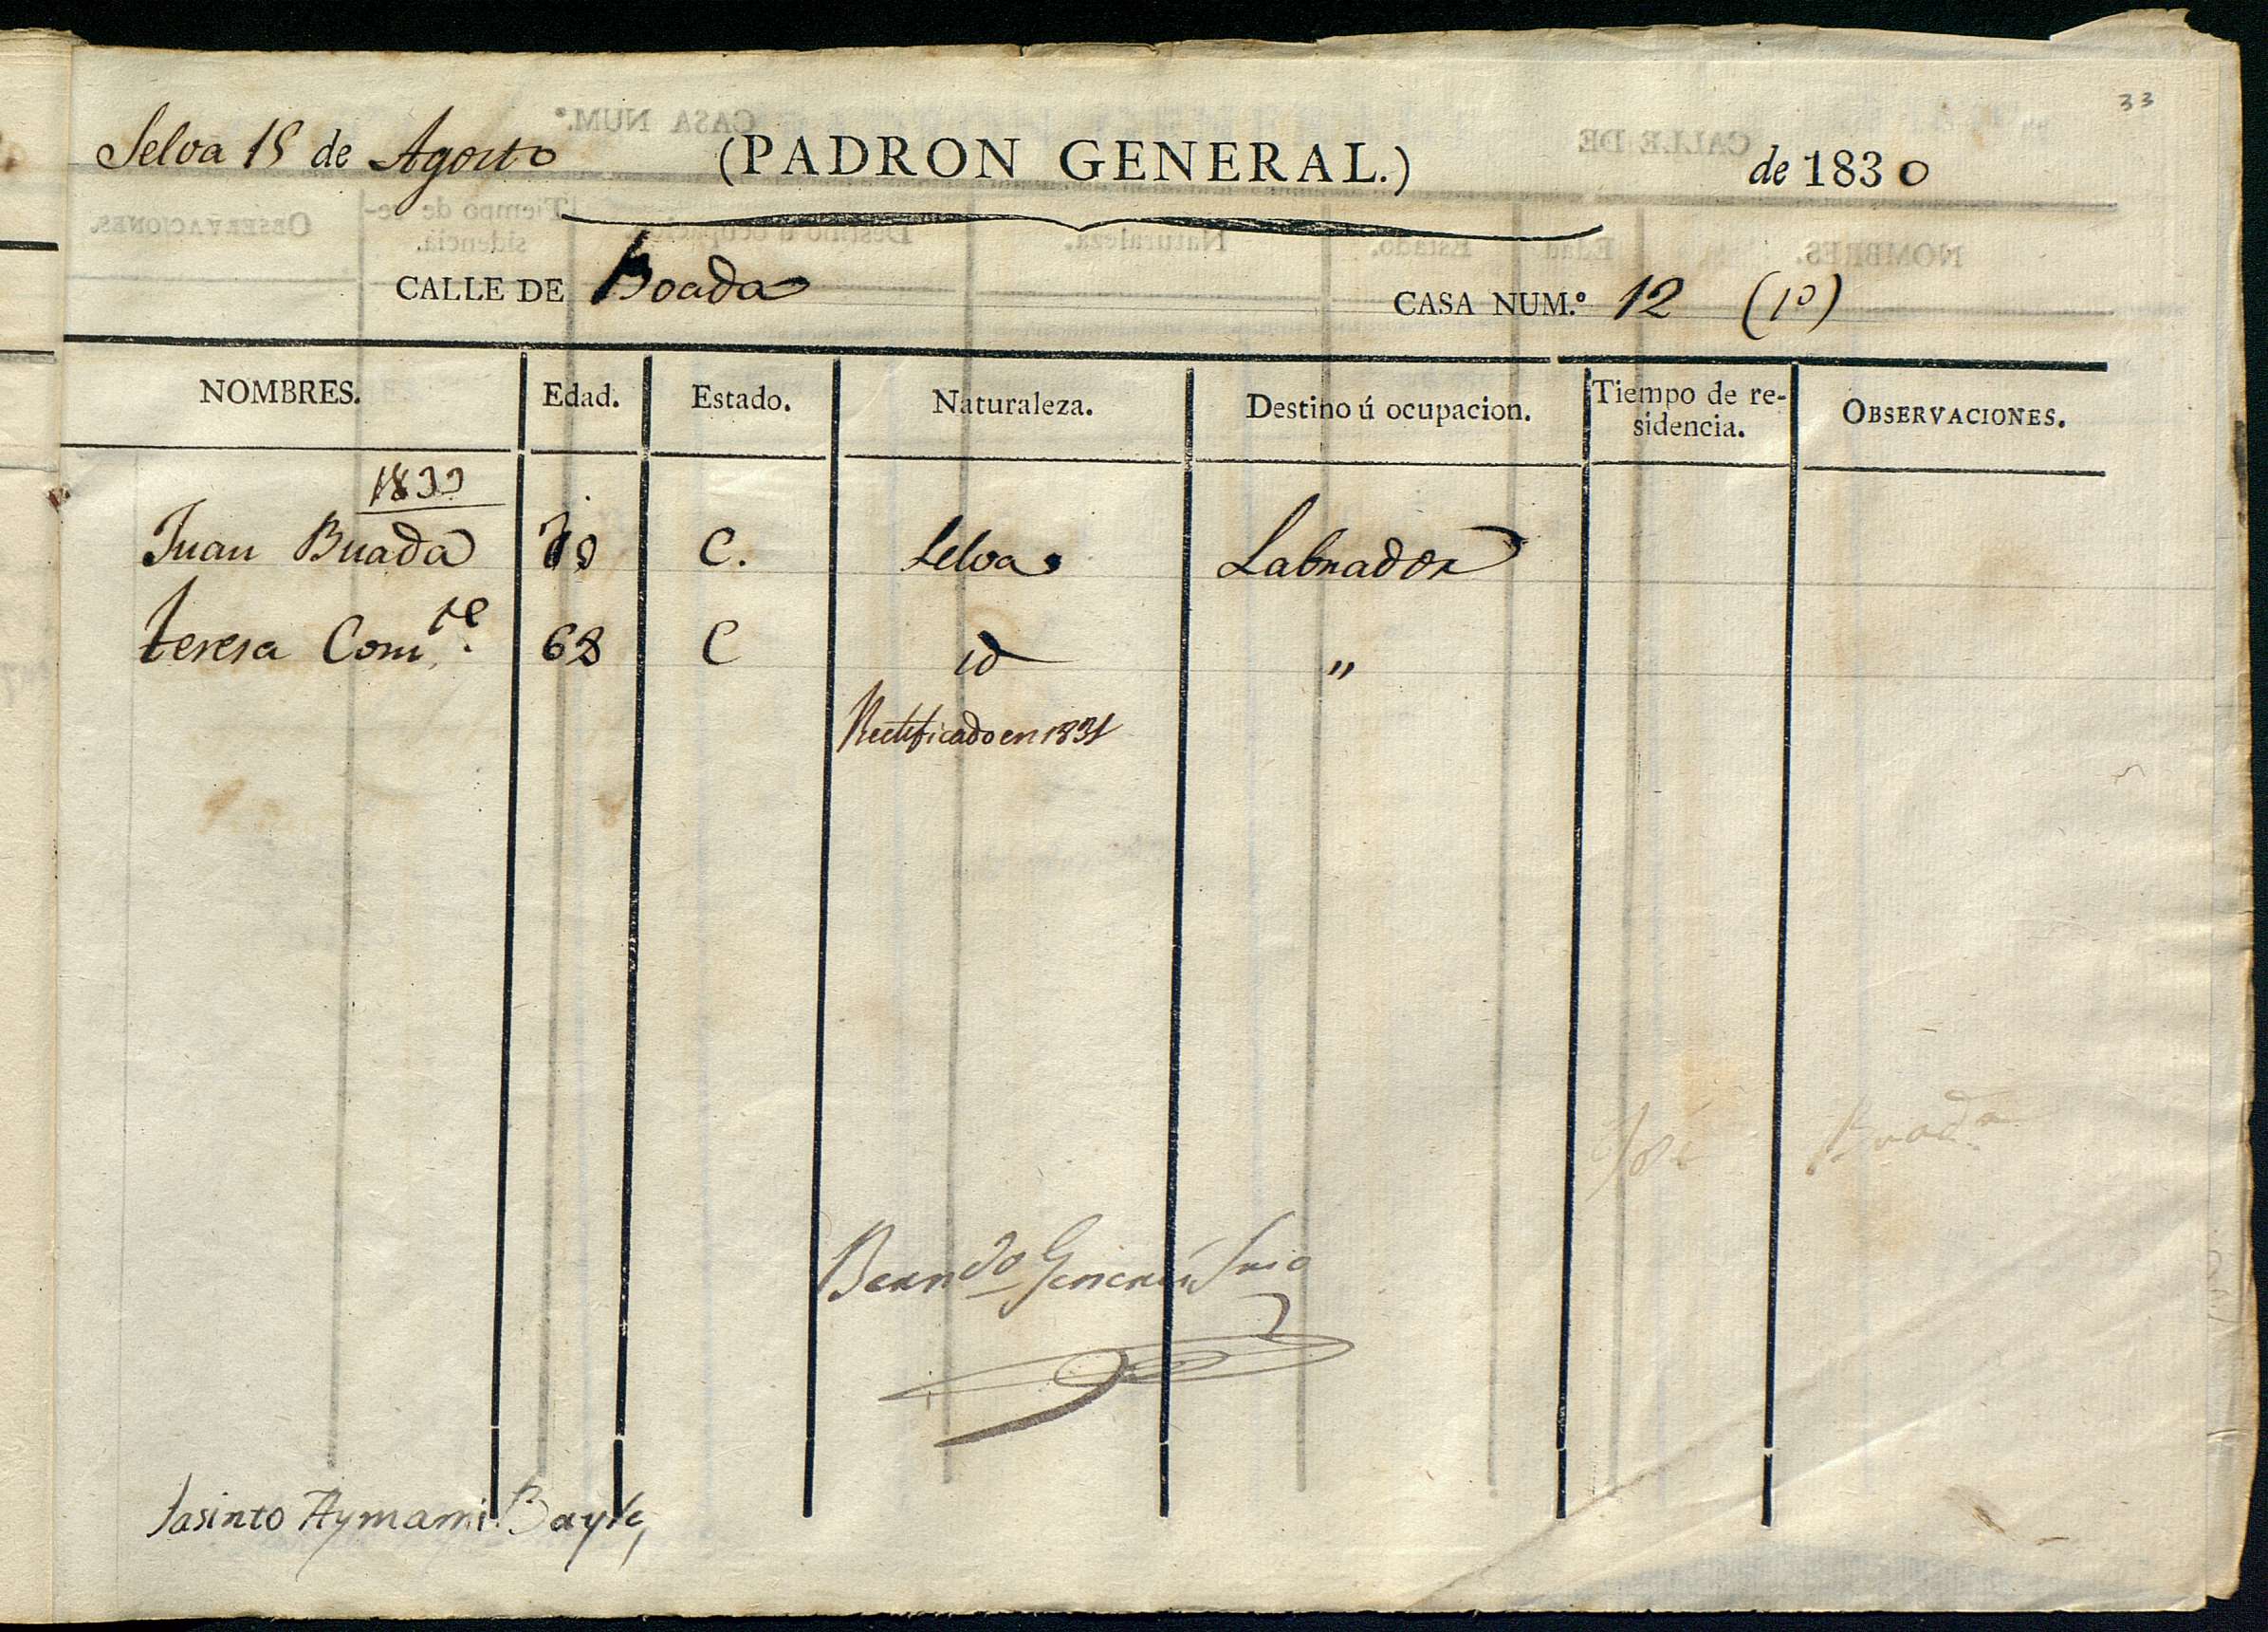 33
Selva 18 de Agosto (PADRON GENERAL.) de 1830
CALLE DE Boada CASA NUM.º 12 (10)
NOMBRES. Edad. Estado. Naturaleza. Destino ú ocupacion. Tiempo de re-
sidencia. OBSERVACIONES.
Juan Buada C. Selva Labrador
Teresa Com.te 68 C id "
Rectificado en 1831
Buada
Berndo
Jasinto Aymami Bayle